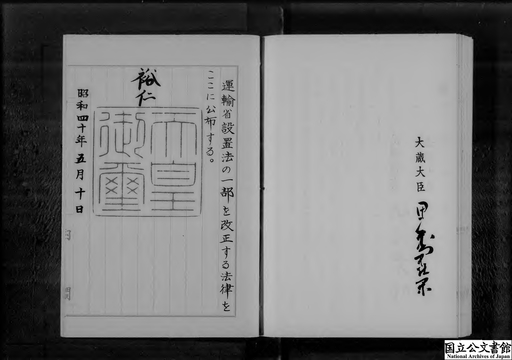 大蔵大臣 田中角榮
運輸省設置法の一部を改正する法律を
ここに公布する。
裕仁
天皇
御璽
昭和四十年五月十日
国立公文書館
National Archives of Japan